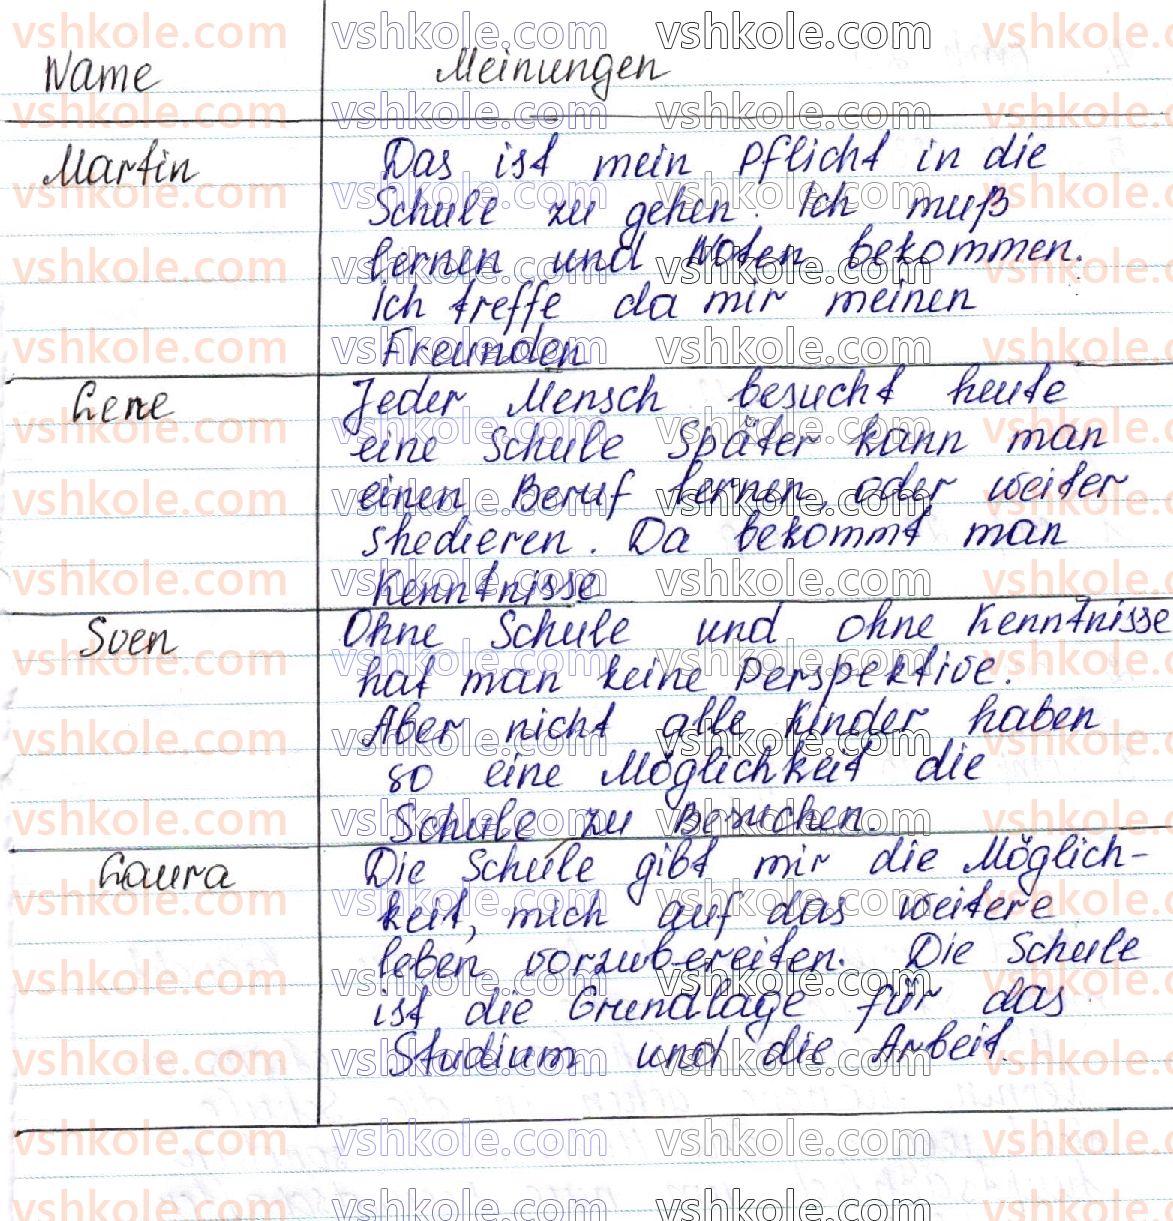 Name Meinungen
Martin Das ist mein Pflicht in die
Schule zu gehen. Ich muß
lernen und Noten bekommen.
Ich treffe da mir meinen
Freunden
Lene Jeder Mensch besucht heute
eine Schule Später kann man
einen Beruf lernen, oder weiter
studieren. Da bekommt man
Kenntnisse
Sven Ohne Schule und ohne Kenntnisse
hat man keine Perspektive.
Aber nicht alle Kinder haben
so eine Möglichkeit die
Schule zu Besuchen.
Laura Die Schule gibt mir die Möglich-
keit, mich auf das weitere
leben vorzubereiten. Die Schule
ist die Grundlage für das
Studium und die Arbeit.